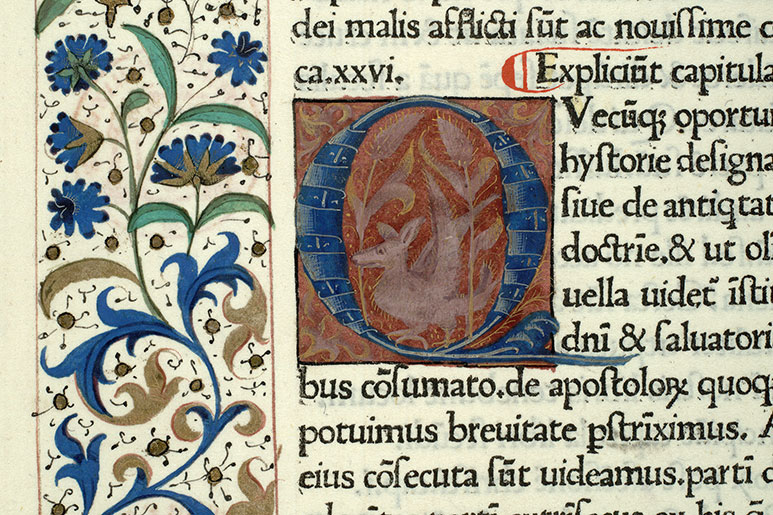 dei malis afflicti sūt ac nouissime c
ca.xxvi. Expliciūt capitula
QVecūq; oportu
hystorie designa
siue de antiqtat
doctrīe.& ut oli
uella uideť īstit
dnī & saluatori
bus cōsumato.de apostoloꝝ quoq
potuimus breuitate ꝑstrīximus. A
eius cōsecuta sūt uideamus.parti d